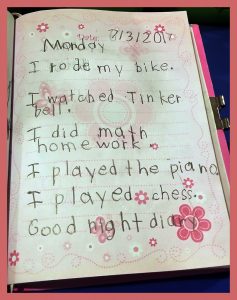 Date: 7/3/201
Monday
I rode my bike.
I watched Tinker
bell.
I did math
homework.
I played the piano
I played chess.
Good night diary